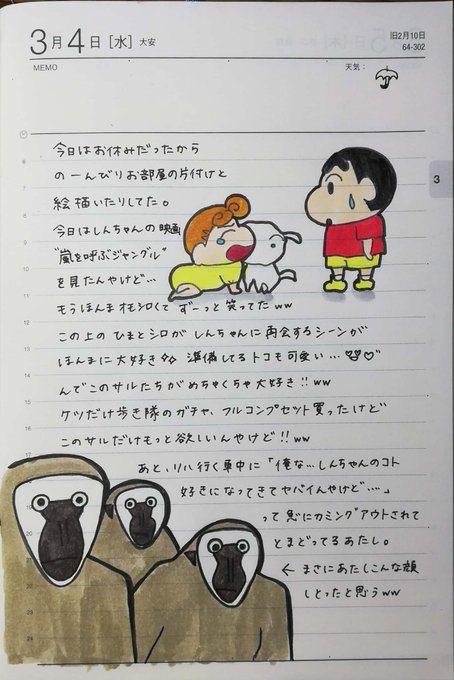 3月4日[水] 大安
旧2月10日
64-302
MEMO
天気:
3
6
7
8
9
10
11
12
13
14
15
16
17
18
19
20
21
22
23
24
今日はお休みだったから
のーんびりお部屋の片付けと
絵描いたりしてた。
今日はしんちゃんの映画
"嵐を呼ぶジャングル"
を見たんやけど…
もうほんまオモシロくて ずーっと笑ってたww
この上の ひまとシロが しんちゃんに再会するシーンが
ほんまに大好き 準備してるトコも可愛い…
んでこのサルたちが めちゃくちゃ大好き!! ww
ケツだけ歩き隊のガチャ、フルコンプセット買ったけど
このサルだけもっと欲しいんやけど!! ww
あと、リハ行く車中に「俺な…しんちゃんのコト
好きになってきてヤバイんやけど…」
って 急にカミングアウトされて
とまどってるあたし。
← まさにあたしこんな顔
しとったと思うww